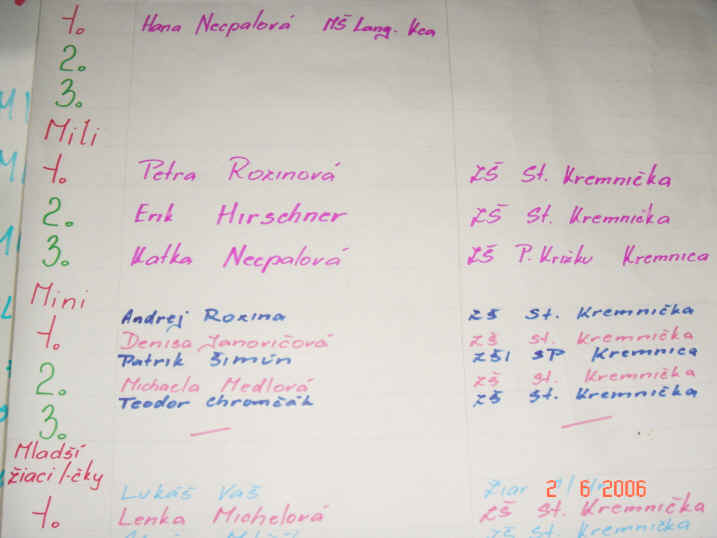 1. Hana Necpalová MŠ Lang. Kca
2.
3.
Mili
1. Petra Roxinová ZŠ St. Kremnička
2. Erik Hirschner ZŠ St. Kremnička
3. Katka Necpalová ZŠ P. Križku Kremnica
Mini
Andrej Roxina ZŠ St. Kremnička
1. Denisa Janovičová ZŠ St. Kremnička
Patrik Šimún ZŠI SP Kremnica
2. Michaela Medlová ZŠ St. Kremnička
Teodor Chromčák ZŠ St. Kremnička
3.
Mladší
žiaci/-čky
Lukáš Vaš Žiar
2 6 2006
1. Lenka Michelová ZŠ St. Kremnička
ZŠ St. Kremnička